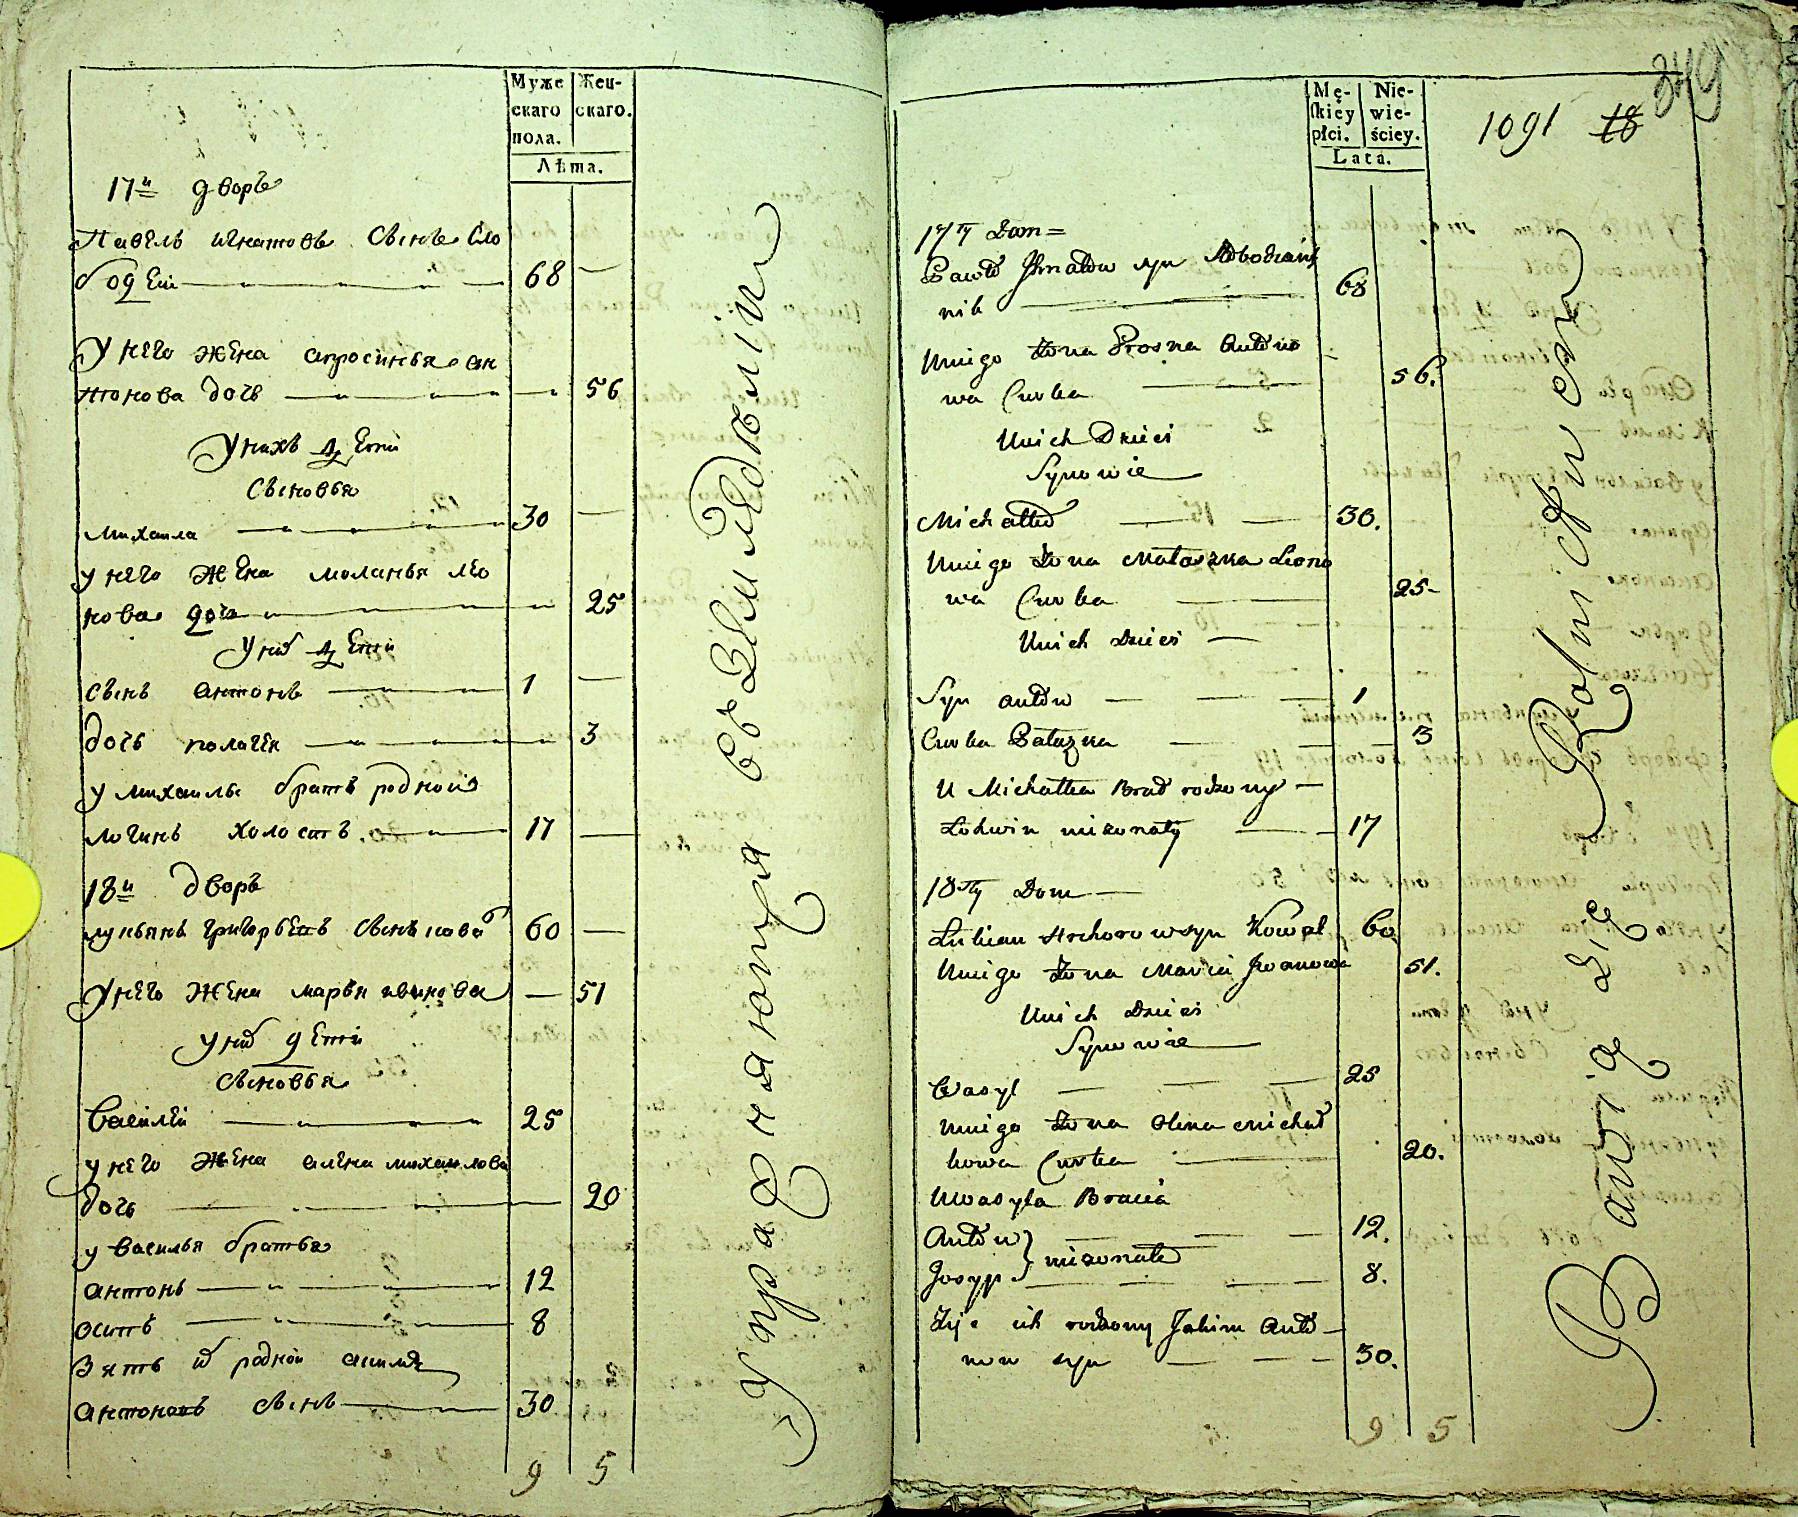 Муже
скаго
пола.
Жен-
скаго.
Лѣта.
17й дворъ
Павелъ игнатовъ сынъ сло
бодей 68 —
У него жена апросинья ан
тонова дочь — 56
У нихъ дети
Сыновья
михаила 30 —
у него жена моланья лео
нова дочь — 25
У ни(х) дети
сынъ антонъ 1 —
дочь палагея — 3
у михаилы братъ родной
логинъ холостъ 17 —
18й дворъ
лукьянъ григорьевъ сынъ 60 —
У него жена марья иванова — 51
у них дети
Сыновья
Василей 25
у него жена алена михаилова
дочь — 20
у василья братья
антонъ 12
осипъ 8
Зять их родной
антоновъ сынъ 30
9 5
Упражняются въ Земледѣлiи
Mę-
skiey
płci.
Nie-
wie-
ściey.
Lata.
1091 18
849
17ty Dom =
Paweł Ihnatow syn Słobodziań
nik 68
U niego Żona Prosna Antono
wa Curka 56.
U nich Dzieci
Synowie
Michałko 30.
U niego Żona Małaszka Leono
wa Curka 25
U nich Dzieci
Syn Anton 1
Curka Pałazka 3
U Michałka Brat rodzony
Łohwin nieżonaty 17
18ty Dom
Łukian Hrehorow syn Kowal 60.
U niego Żona Maria Jwanowa 51.
U nich Dzieci
Synowie
Wasyl 25
U niego Żona Olena Michał
kowa Curka 20.
U Wasyla Bracia
Anton 12.
nieżonate
Josyp 8.
Zięć ich rodzony Jakim Anto
now syn 30.
9 5
Bawią się Rolnictwem